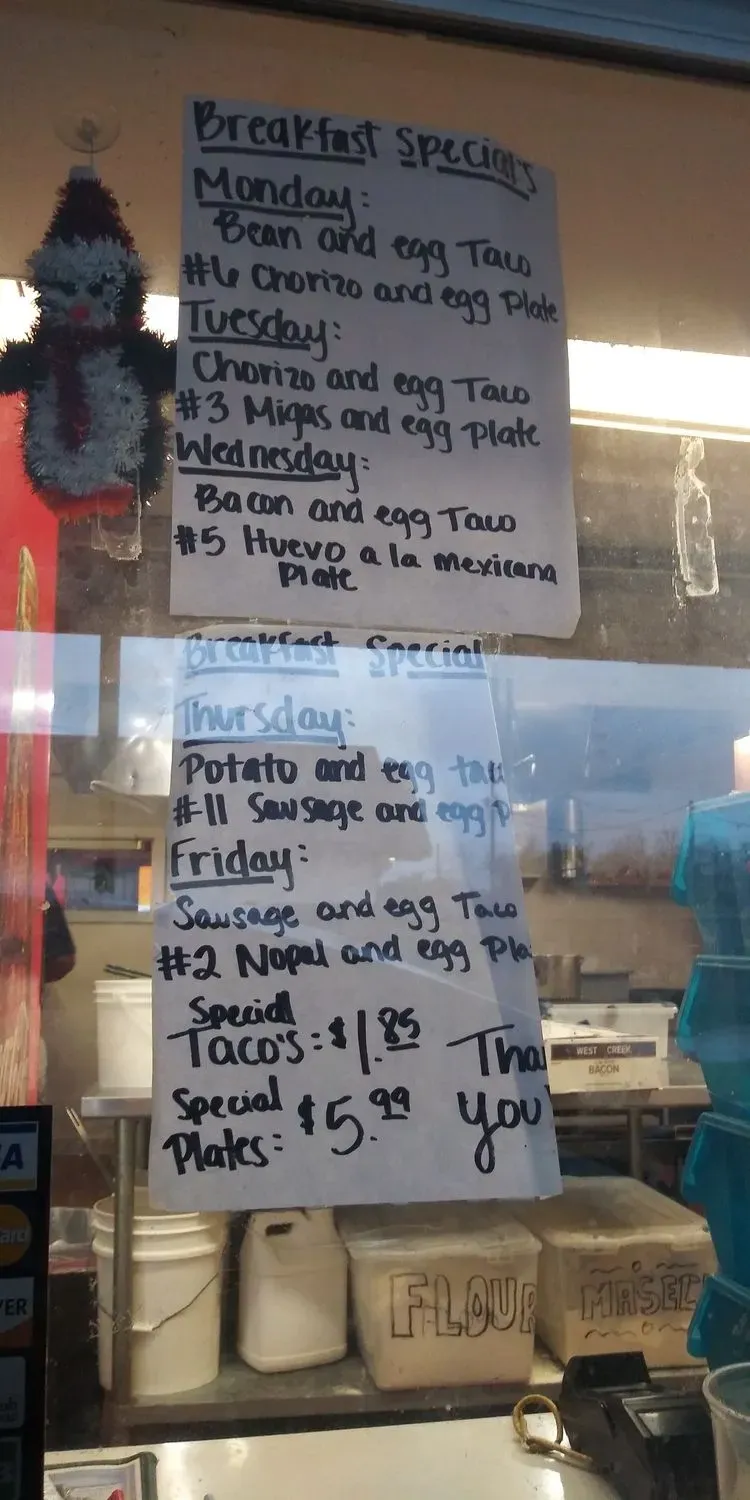 Breakfast Specials
Monday:
Bean and egg Taco
#6 Chorizo and egg Plate
Tuesday:
Chorizo and egg Taco
#3 Migas and egg Plate
Wednesday:
Bacon and egg Taco
#5 Huevo a la mexicana
Plate
Breakfast Special
Thursday:
Potato and egg tac
#11 Sausage and egg P
Friday:
Sausage and egg Taco
#2 Nopal and egg Pla
Special
Taco's: $1.85
Special
Plates: $5.99
Tha
you
WEST CREEK
BACON
FLOUR
MASEC
A
ard
ER